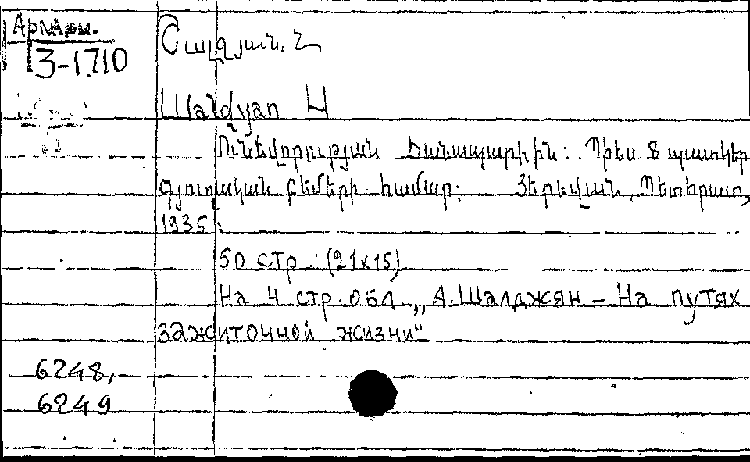 Арм.
3-1710
Շալջյան. Հ
Шалджян
Ունևորության ճանապարհին: Պիես 8 պատկեր
գյուղական բեմերի համար: Յերևան, Պետհրատ,
1935:
50 стр. (21x15)
На 4 стр. обл. „А. Шалджян – На путях
зажиточной жизни“
6248,
6249